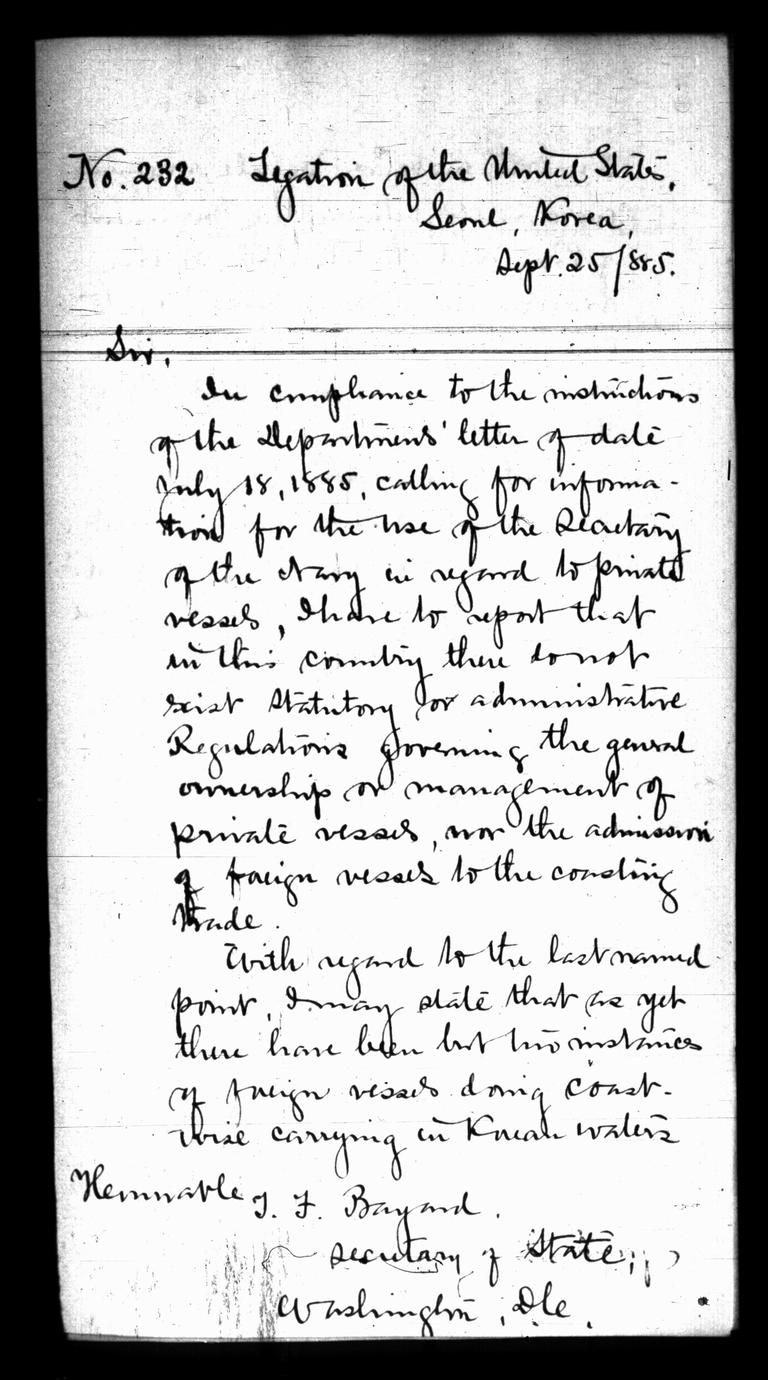 No. 232 Legation of the United States,
Seoul, Korea,
Sept. 25/885.
Sir,
In compliance to the instructions
of the Departments' letter of date
July 18, 1885, calling for informa-
tion for the use of the Secretary
of the Navy in regard to private
vessels, I have to report that
in this country there do not
exist Statutory or administrative
Regulations governing the general
ownership or management of
private vessels, nor the admission
of foreign vessels to the coasting
trade.
With regard to the last named
point, I may state that as yet
there have been but two instances
of foreign vessels doing coast-
wise carrying in Korean waters
Honorable T. F. Bayard.
Secretary of State,
Washington,